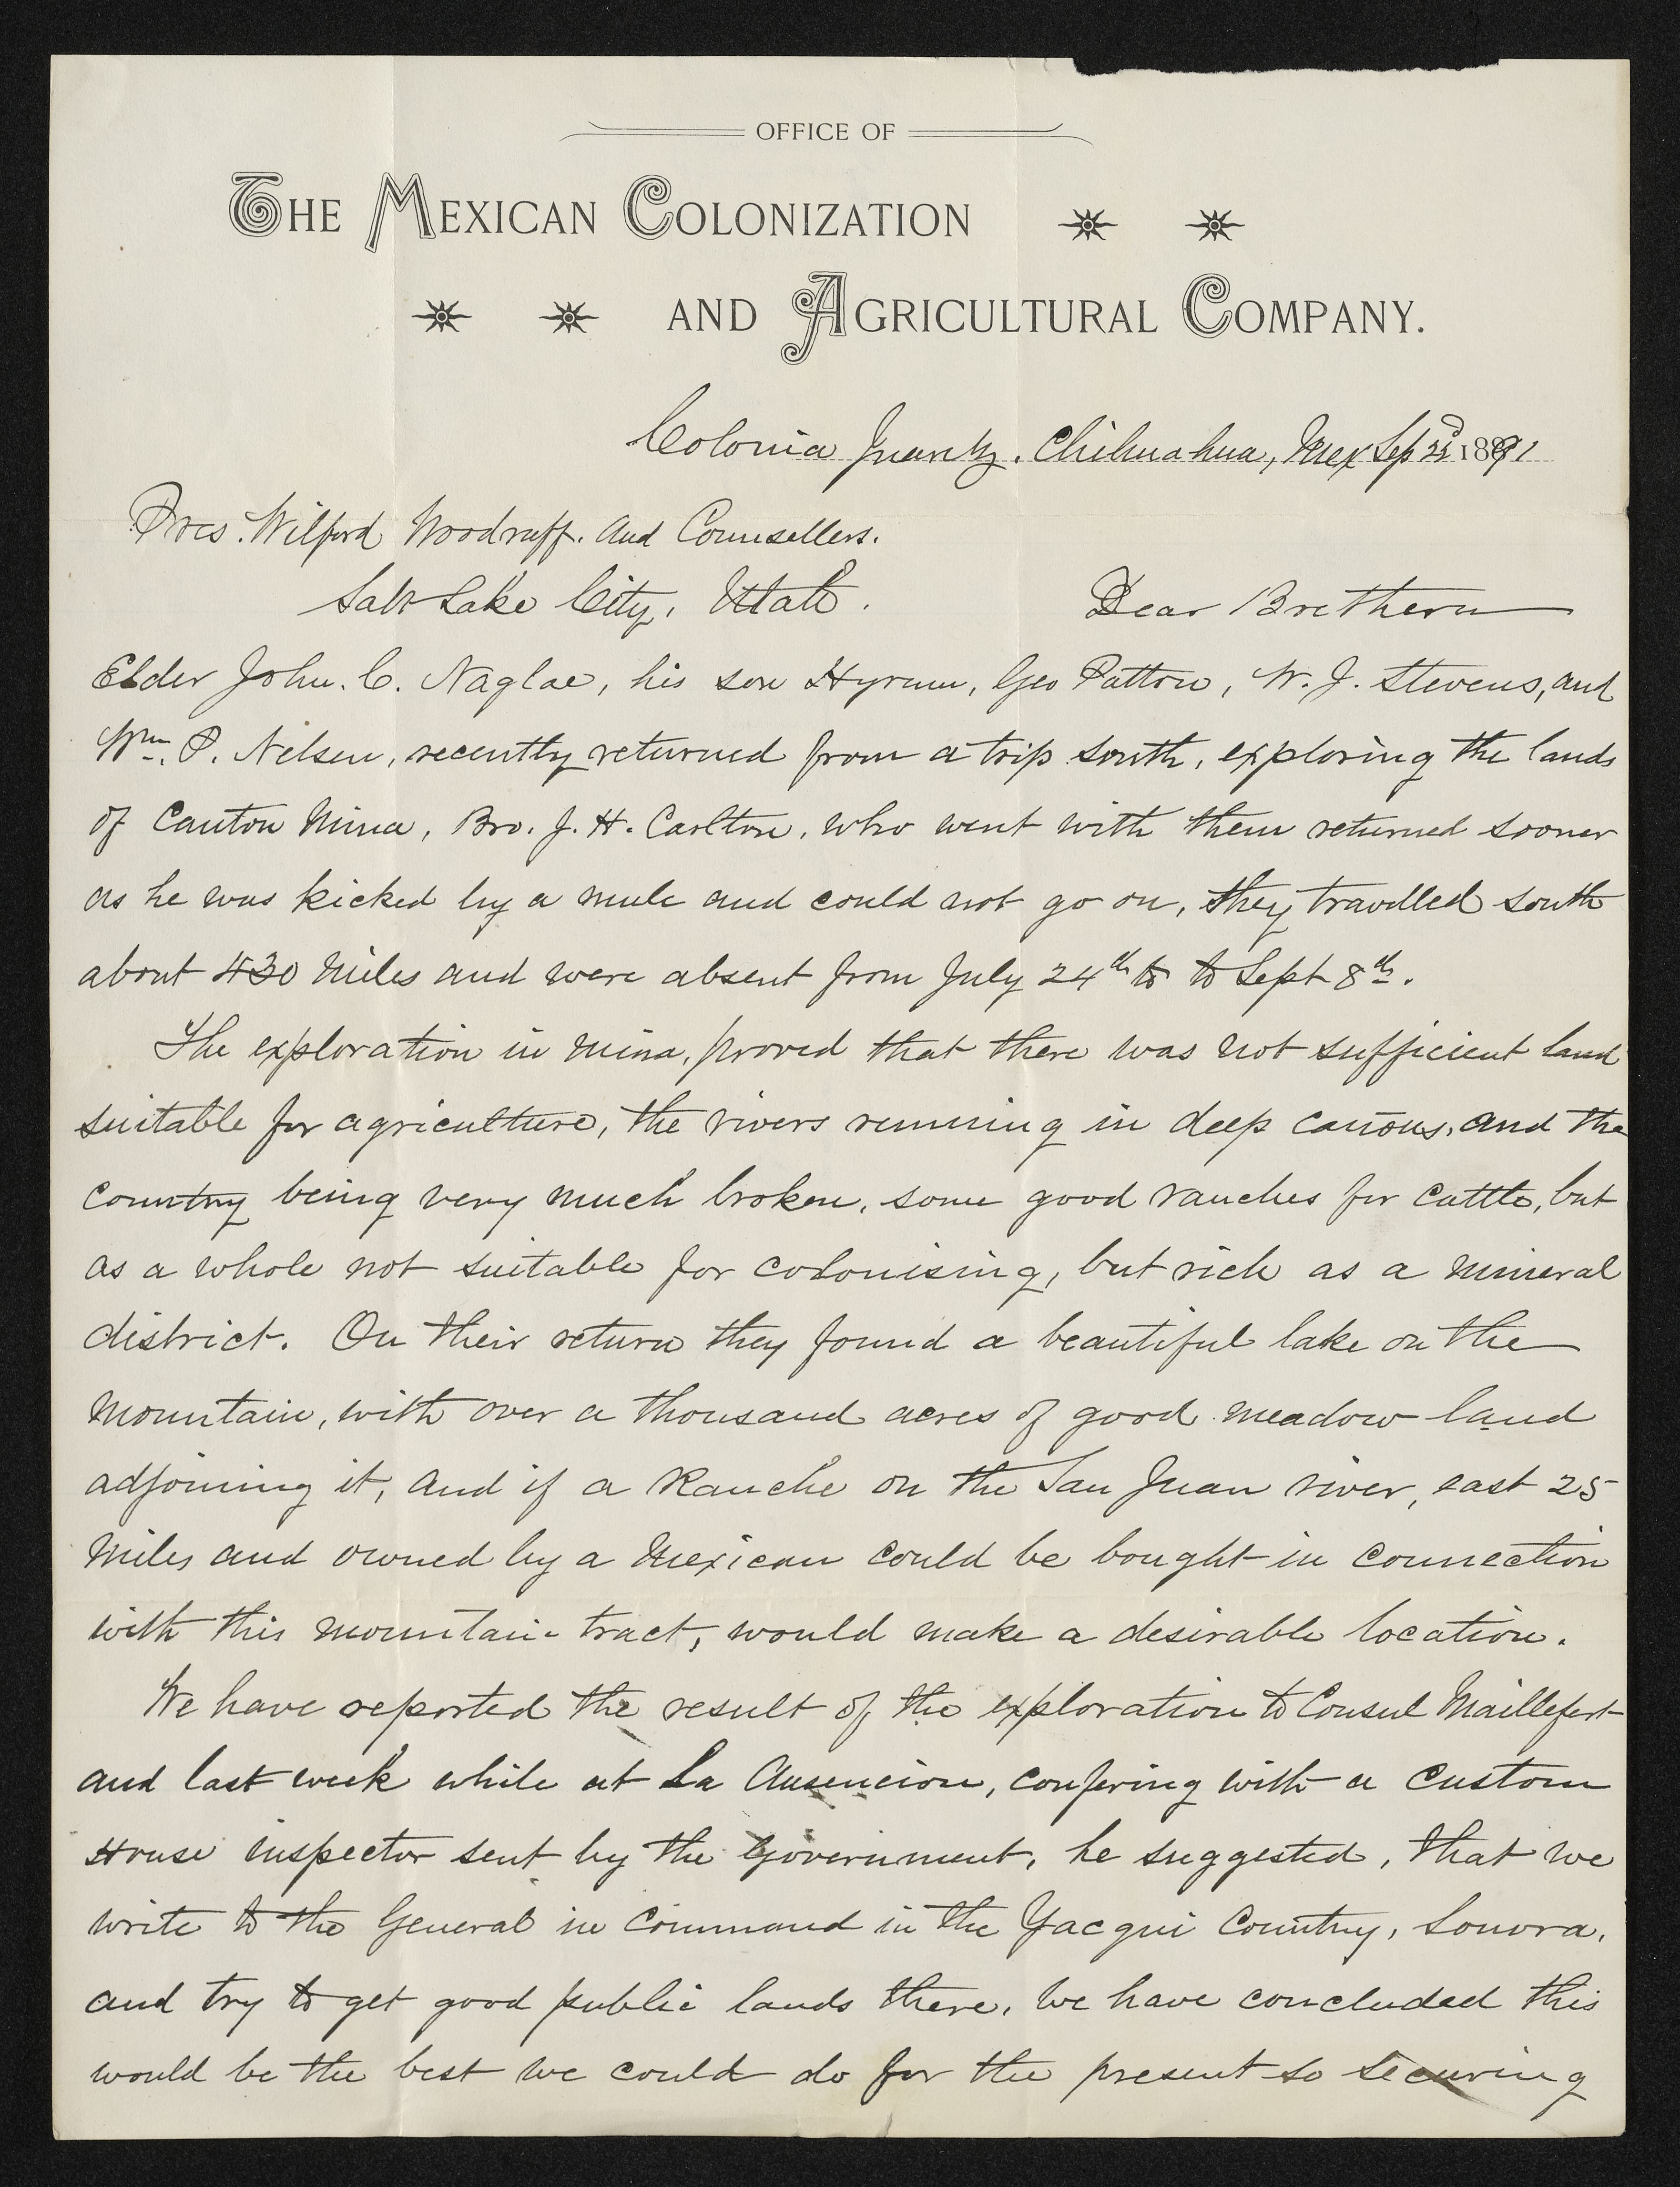 OFFICE OF
THE MEXICAN COLONIZATION
AND AGRICULTURAL COMPANY.
Colonia Juarez. Chihuahua, Mex Sep 1891
Pres. Wilford Woodruff. and Counsellers.
Salt Lake City, Utah. Dear Brethern
Elder John. C. Naglae, his son Hyrum, Geo Patton, W. J. Stevens, and
Wm. P. Nelsen, recently returned from a trip south, exploring the lands
of Canton Mina, Bro. J. H. Carlton, who went with them returned sooner
as he was kicked by a mule and could not go on, they travelled south
about 430 Miles and were absent from July 24th to to Sept 8th.
The exploration in Mina, proved that there was not sufficient land
suitable for agriculture, the rivers running in deep cañons, and the
country being very much broken, some good ranches for cattle, but
as a whole not suitable for colonising, but rich as a mineral
district. On their return they found a beautiful lake on the
mountain, with over a thousand acres of good meadow land
adjoining it, and if a Ranche on the San Juan river, east 25
Miles and owned by a Mexican could be bought in connection
with this mountain tract, would make a desirable location.
We have reported the result of the exploration to Consul Maillefert
and last week while at La Ausencion, confering with a Custom
House inspector sent by the Government, he suggested, that we
write to the General in Command in the Yacqui Country, Sonora,
and try to get good public lands there, We have concluded this
would be the best we could do for the present so securing